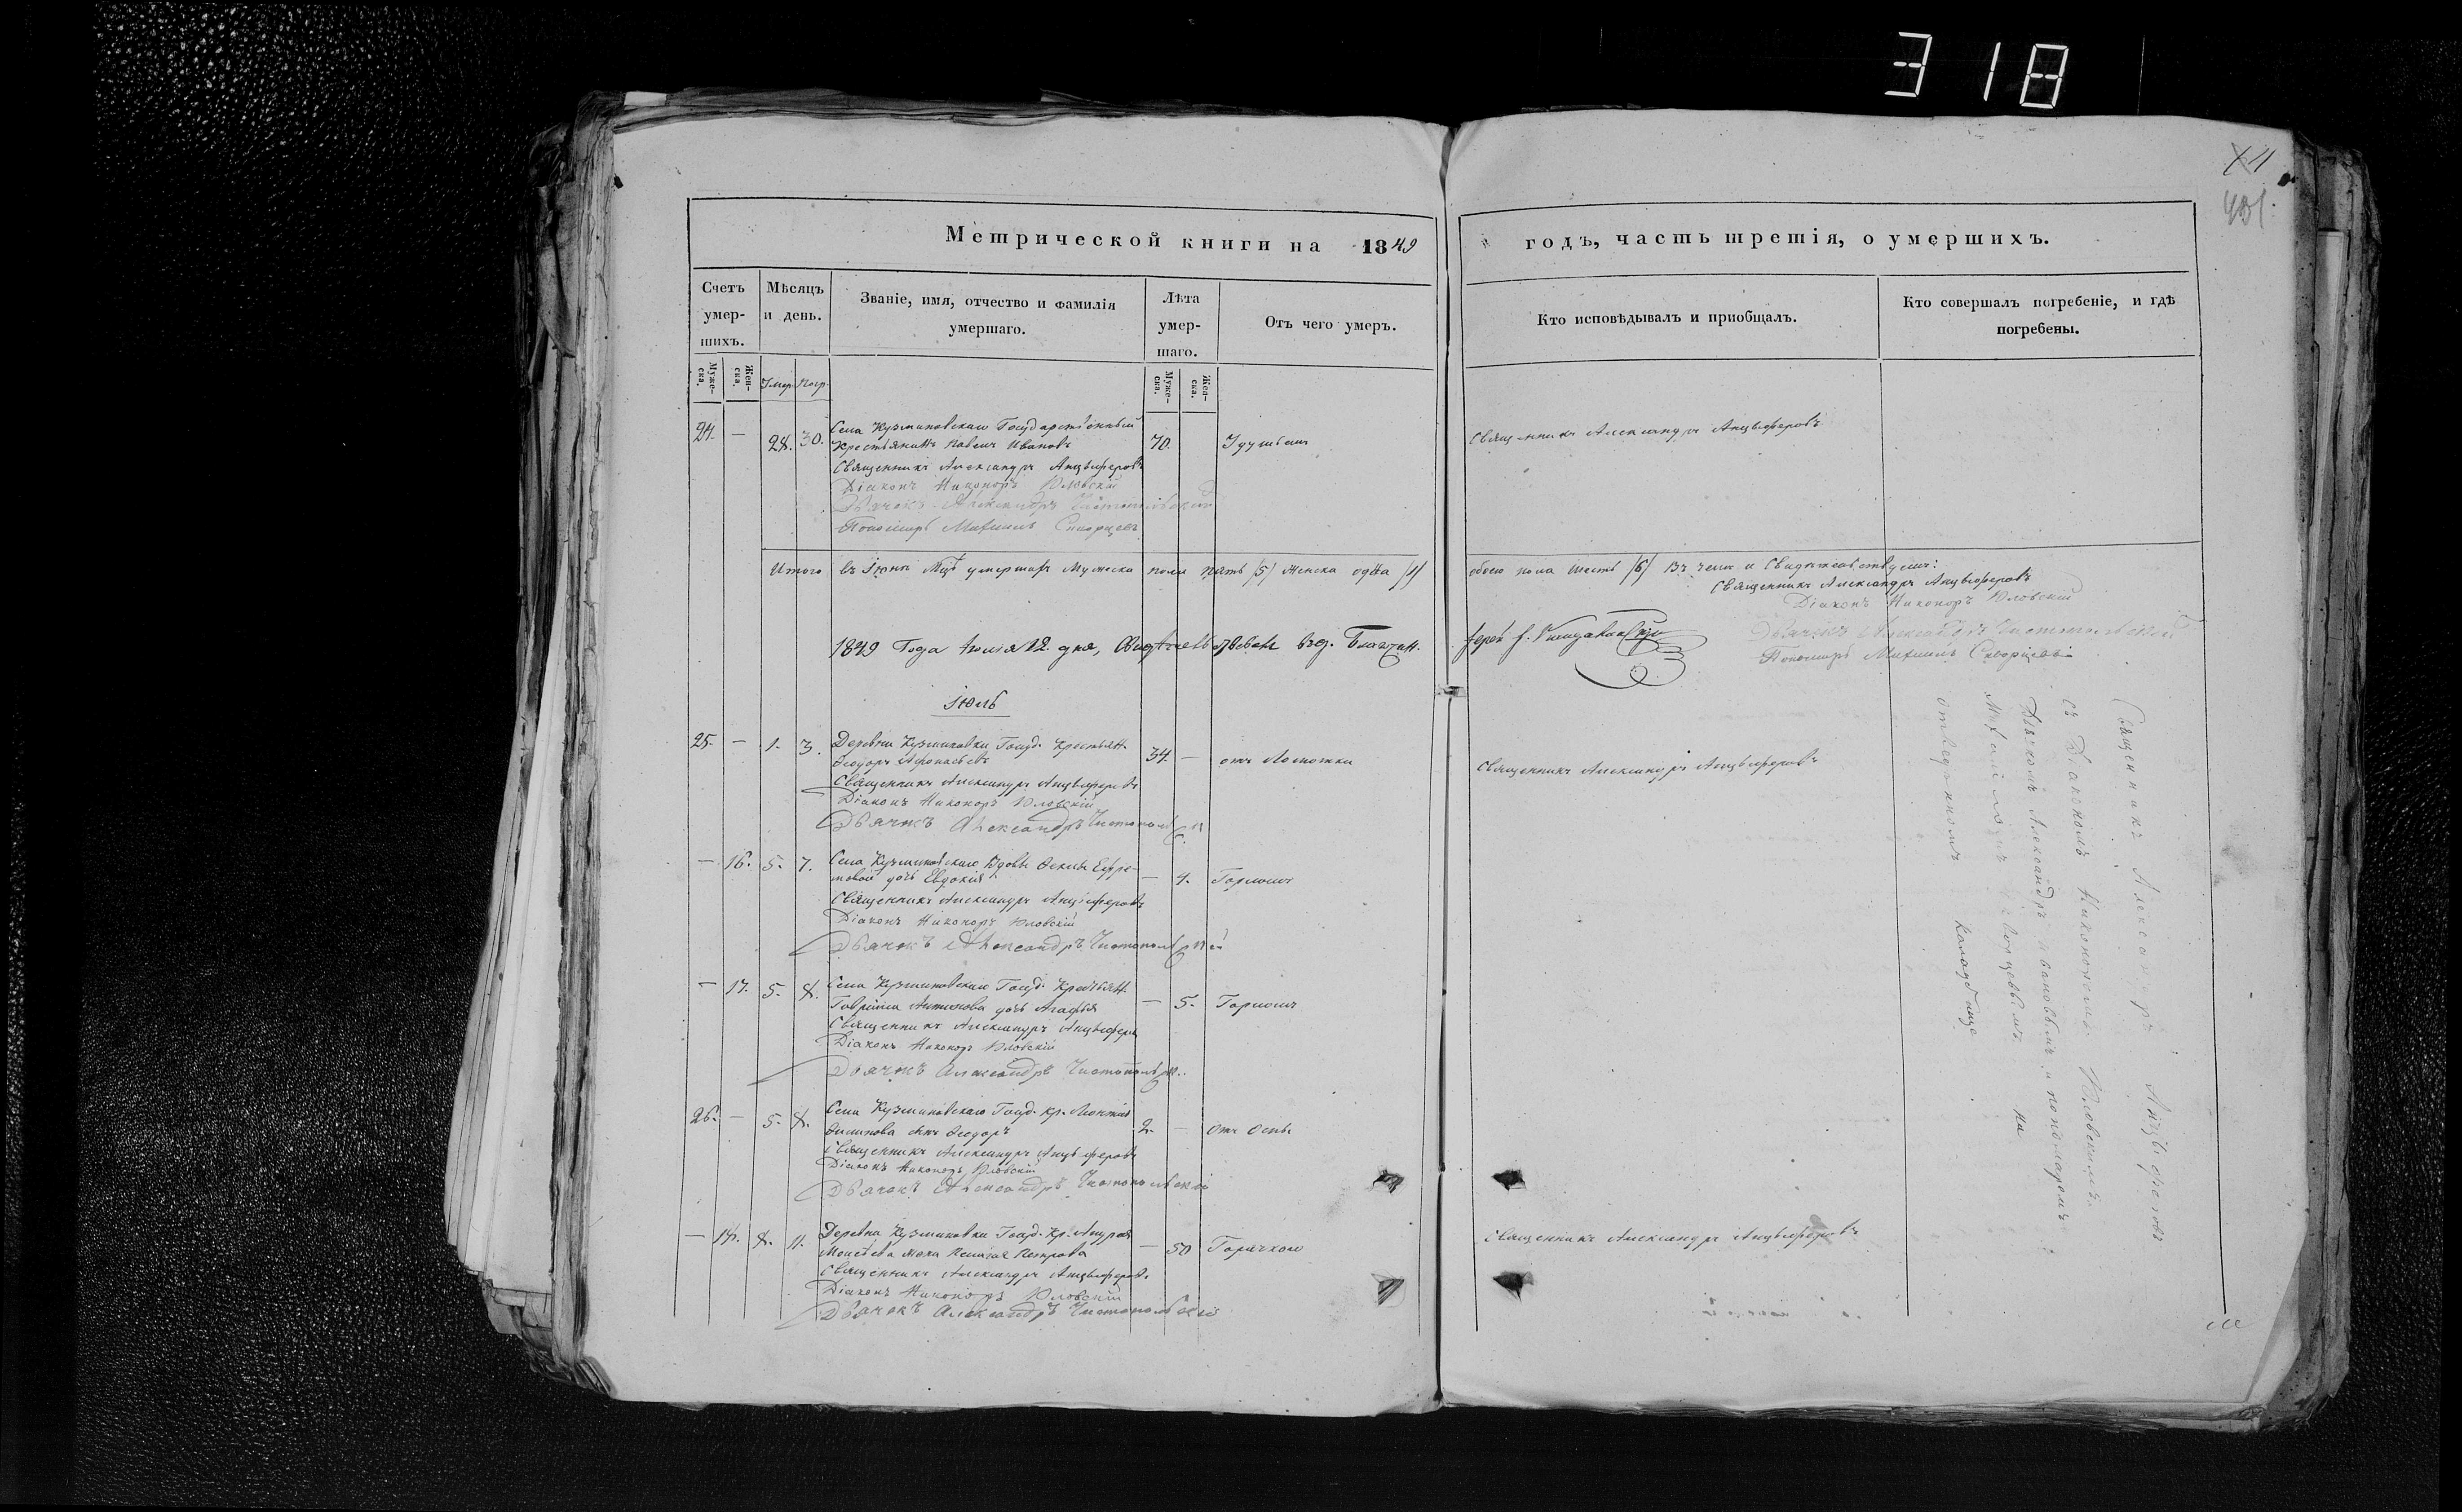 318
401
Метрической книги на 1849
годъ, часть третія, о умершихъ.
Счетъ умер-шихъ.
Мѣсяцъ и день.
Званіе, имя, отчество и фамилія умершаго.
Лѣта умер-шаго.
Отъ чего умеръ.
Кто исповѣдывалъ и приобщалъ.
Кто совершалъ погребеніе, и гдѣ погребены.
Муже-ска.
Жен-ска.
Умер.
Погр.
Муже-ска.
Жен-ска.
24. — 28. 30. Села Кузминовскаго Государственный
Крестьянинъ Павелъ Ивановъ
70. Удушьемъ
Священникъ Александръ Анцыферовъ
Священникъ Александръ Анцыферовъ
Діаконъ Никоноръ Юловскій
Дьячокъ Александръ Чистопольскій
Пономарь Михаилъ Скворцевъ
Итого въ Іюнѣ Мцѣ умершихъ Мужеска пола пять /5/ Женска одна /1/
обоего пола шесть /6/ Въ чемъ и Свидѣтельствуемъ:
Священникъ Александръ Анцыферовъ
Діаконъ Никоноръ Юловскій
Дьячокъ Александръ Чистопольскій
Пономарь Михаилъ Скворцевъ
1849 Года Іюля 12. дня, Свидѣтельствовалъ
Іюль
25. — 1. 3. Деревни Кузминовки Госуд. Крестьян.
Ѳеодоръ Афонасьевъ
34. — отъ Ломотки
Священникъ Александръ Анцыферовъ
Священникъ Александръ Анцыферовъ
Діаконъ Никоноръ Юловскій
Дьячокъ Александръ Чистопольскій
— 16. 5. 7. Села Кузминовскаго Вдовы Ѳеклы Ефре-
мовой дочь Евдокія
— 4. Горломъ
Священникъ Александръ Анцыферовъ
Діаконъ Никоноръ Юловскій
Дьячокъ Александръ Чистопольскій
— 17. 5. 8. Села Кузминовскаго Госуд. Крестьян.
Гавріила Антипова дочь Агафья
— 5. Горломъ
Священникъ Александръ Анцыферовъ
Діаконъ Никоноръ Юловскій
Дьячокъ Александръ Чистопольскій
26. — 5. 8. Села Кузминовскаго Госуд. Кр.
сынъ Ѳеодоръ
2. — Отъ Оспы
Священникъ Александръ Анцыферовъ
Діаконъ Никоноръ Юловскій
Дьячокъ Александръ Чистопольскій
— 18. 8. 11. Деревни Кузминовки Госуд. Кр. Андрея
Моисѣева жена Пелагея Петрова
— 50 Горячкою
Священникъ Александръ Анцыферовъ
Священникъ Александръ Анцыферовъ
Діаконъ Никоноръ Юловскій
Дьячокъ Александръ Чистопольскій
Священникъ Александръ Анцыферовъ
съ Діакономъ Никоноромъ Юловскимъ
Дьячкомъ Александръ Ивановымъ и пономаремъ
Михаиломъ Скворцевымъ на
отведенномъ Кладбище